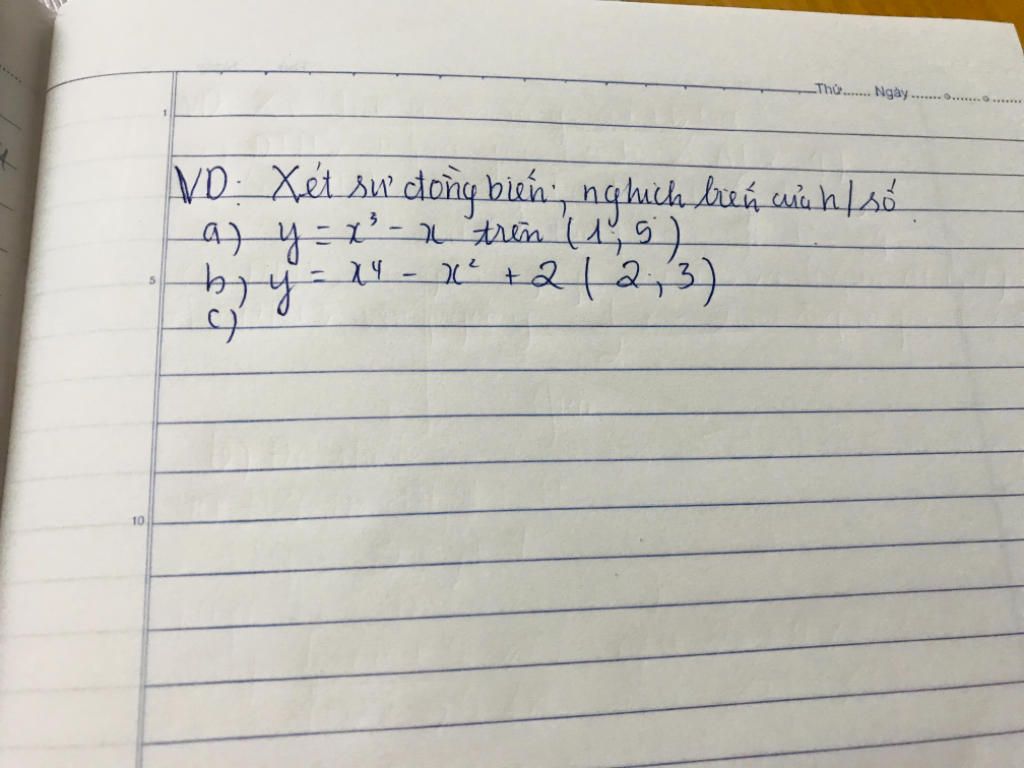 Thứ....... Ngày.......
1
VD: Xét sự đồng biến; nghịch biến của h/số
a) y = x³ - x trên (1; 5)
5
b) y = x⁴ - x² + 2 ( 2; 3)
c)
10